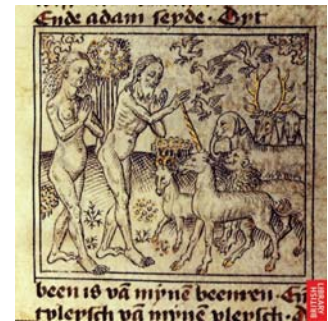 Ende adam seyde · Dyt
been is vā mynē beenren · Eñ
vleysch vā mynē vleysch · d
BRITISH
LIBRARY